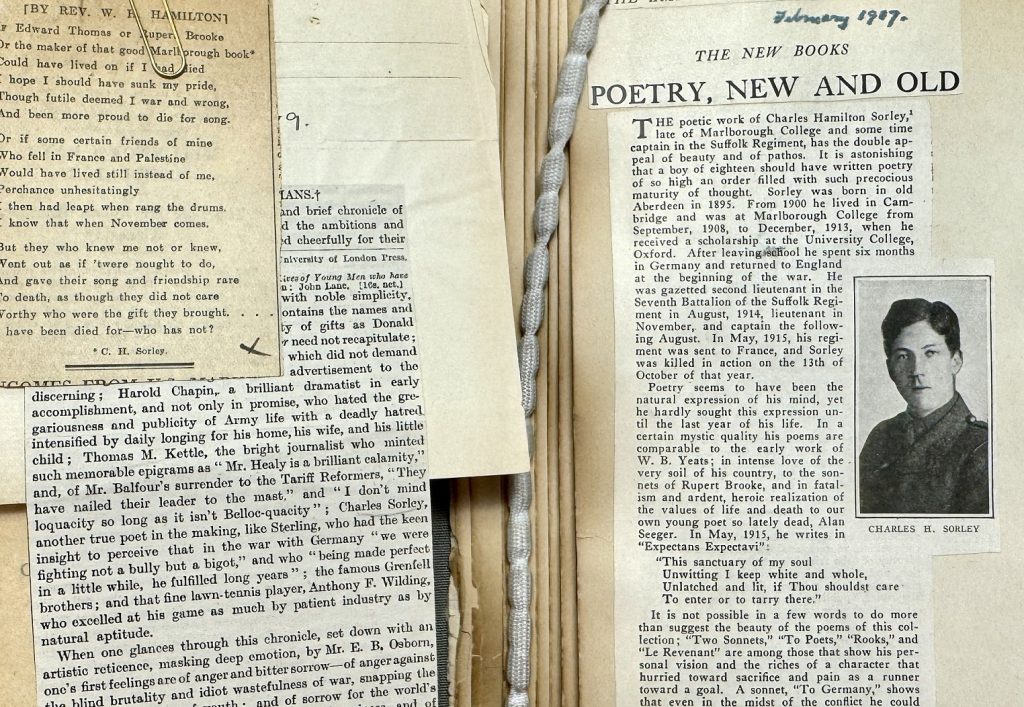 [BY REV. W. HAMILTON]
Edward Thomas or Rupert Brooke
Or the maker of that good Marlborough book*
Could have lived on if I had died
I hope I should have sunk my pride,
Though futile deemed I war and wrong,
And been more proud to die for song.
Or if some certain friends of mine
Who fell in France and Palestine
Would have lived still instead of me,
Perchance unhesitatingly
I then had leapt when rang the drums.
I know that when November comes.
But they who knew me not or knew,
Went out as if 'twere nought to do,
And gave their song and friendship rare
To death, as though they did not care
Worthy who were the gift they brought. . . .
have been died for—who has not?
* C. H. Sorley.
9.
IANS.†
and brief chronicle of
the ambitions and
cheerfully for their
University of London Press.
Lives of Young Men who have
John Lane. [16s. net.]
with noble simplicity,
contains the names and
ty of gifts as Donald
need not recapitulate;
which did not demand
advertisement to the
discerning; Harold Chapin, a brilliant dramatist in early
accomplishment, and not only in promise, who hated the gre-
gariousness and publicity of Army life with a deadly hatred
intensified by daily longing for his home, his wife, and his little
child; Thomas M. Kettle, the bright journalist who minted
such memorable epigrams as "Mr. Healy is a brilliant calamity,"
and, of Mr. Balfour's surrender to the Tariff Reformers, "They
have nailed their leader to the mast," and "I don't mind
loquacity so long as it isn't Belloc-quacity"; Charles Sorley,
another true poet in the making, like Sterling, who had the keen
insight to perceive that in the war with Germany "we were
fighting not a bully but a bigot," and who "being made perfect
in a little while, he fulfilled long years"; the famous Grenfell
brothers; and that fine lawn-tennis player, Anthony F. Wilding,
who excelled at his game as much by patient industry as by
natural aptitude.
When one glances through this chronicle, set down with an
artistic reticence, masking deep emotion, by Mr. E. B. Osborn,
one's first feelings are of anger and bitter sorrow—of anger against
the blind brutality and idiot wastefulness of war, snapping the
and of sorrow for the world's
February 1917.
THE NEW BOOKS
POETRY, NEW AND OLD
THE poetic work of Charles Hamilton Sorley,¹
late of Marlborough College and some time
captain in the Suffolk Regiment, has the double ap-
peal of beauty and of pathos. It is astonishing
that a boy of eighteen should have written poetry
of so high an order filled with such precocious
maturity of thought. Sorley was born in old
Aberdeen in 1895. From 1900 he lived in Cam-
bridge and was at Marlborough College from
September, 1908, to December, 1913, when he
received a scholarship at the University College,
Oxford. After leaving school he spent six months
in Germany and returned to England
at the beginning of the war. He
was gazetted second lieutenant in the
Seventh Battalion of the Suffolk Regi-
ment in August, 1914, lieutenant in
November, and captain the follow-
ing August. In May, 1915, his regi-
ment was sent to France, and Sorley
was killed in action on the 13th of
October of that year.
Poetry seems to have been the
natural expression of his mind, yet
he hardly sought this expression un-
til the last year of his life. In a
certain mystic quality his poems are
comparable to the early work of
W. B. Yeats; in intense love of the
very soil of his country, to the son-
nets of Rupert Brooke, and in fatal-
ism and ardent, heroic realization of
the values of life and death to our
own young poet so lately dead, Alan
Seeger. In May, 1915, he writes in
"Expectans Expectavi":
"This sanctuary of my soul
Unwitting I keep white and whole,
Unlatched and lit, if Thou shouldst care
To enter or to tarry there."
It is not possible in a few words to do more
than suggest the beauty of the poems of this col-
lection; "Two Sonnets," "To Poets," "Rooks," and
"Le Revenant" are among those that show his per-
sonal vision and the riches of a character that
hurried toward sacrifice and pain as a runner
toward a goal. A sonnet, "To Germany," shows
that even in the midst of the conflict he could
CHARLES H. SORLEY